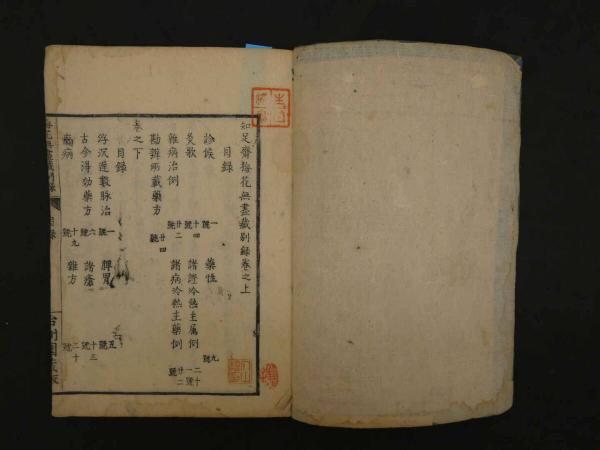 知足齋梅花無盡藏別錄卷之上
目錄
診候 一號 藥性 九號
炙歌 十四號 諸證冷熱主屬例 二十一號
雜病治例 廿二號 諸病冷熱主藥例 廿二號
勘辨所載藥方 廿四號
卷之下
目錄
浮沉遲數脉治 一號 脾胃 五號
古今得効藥方 六號 諸瘡 十三號
癎病 十九號 雜方 二十號
目錄